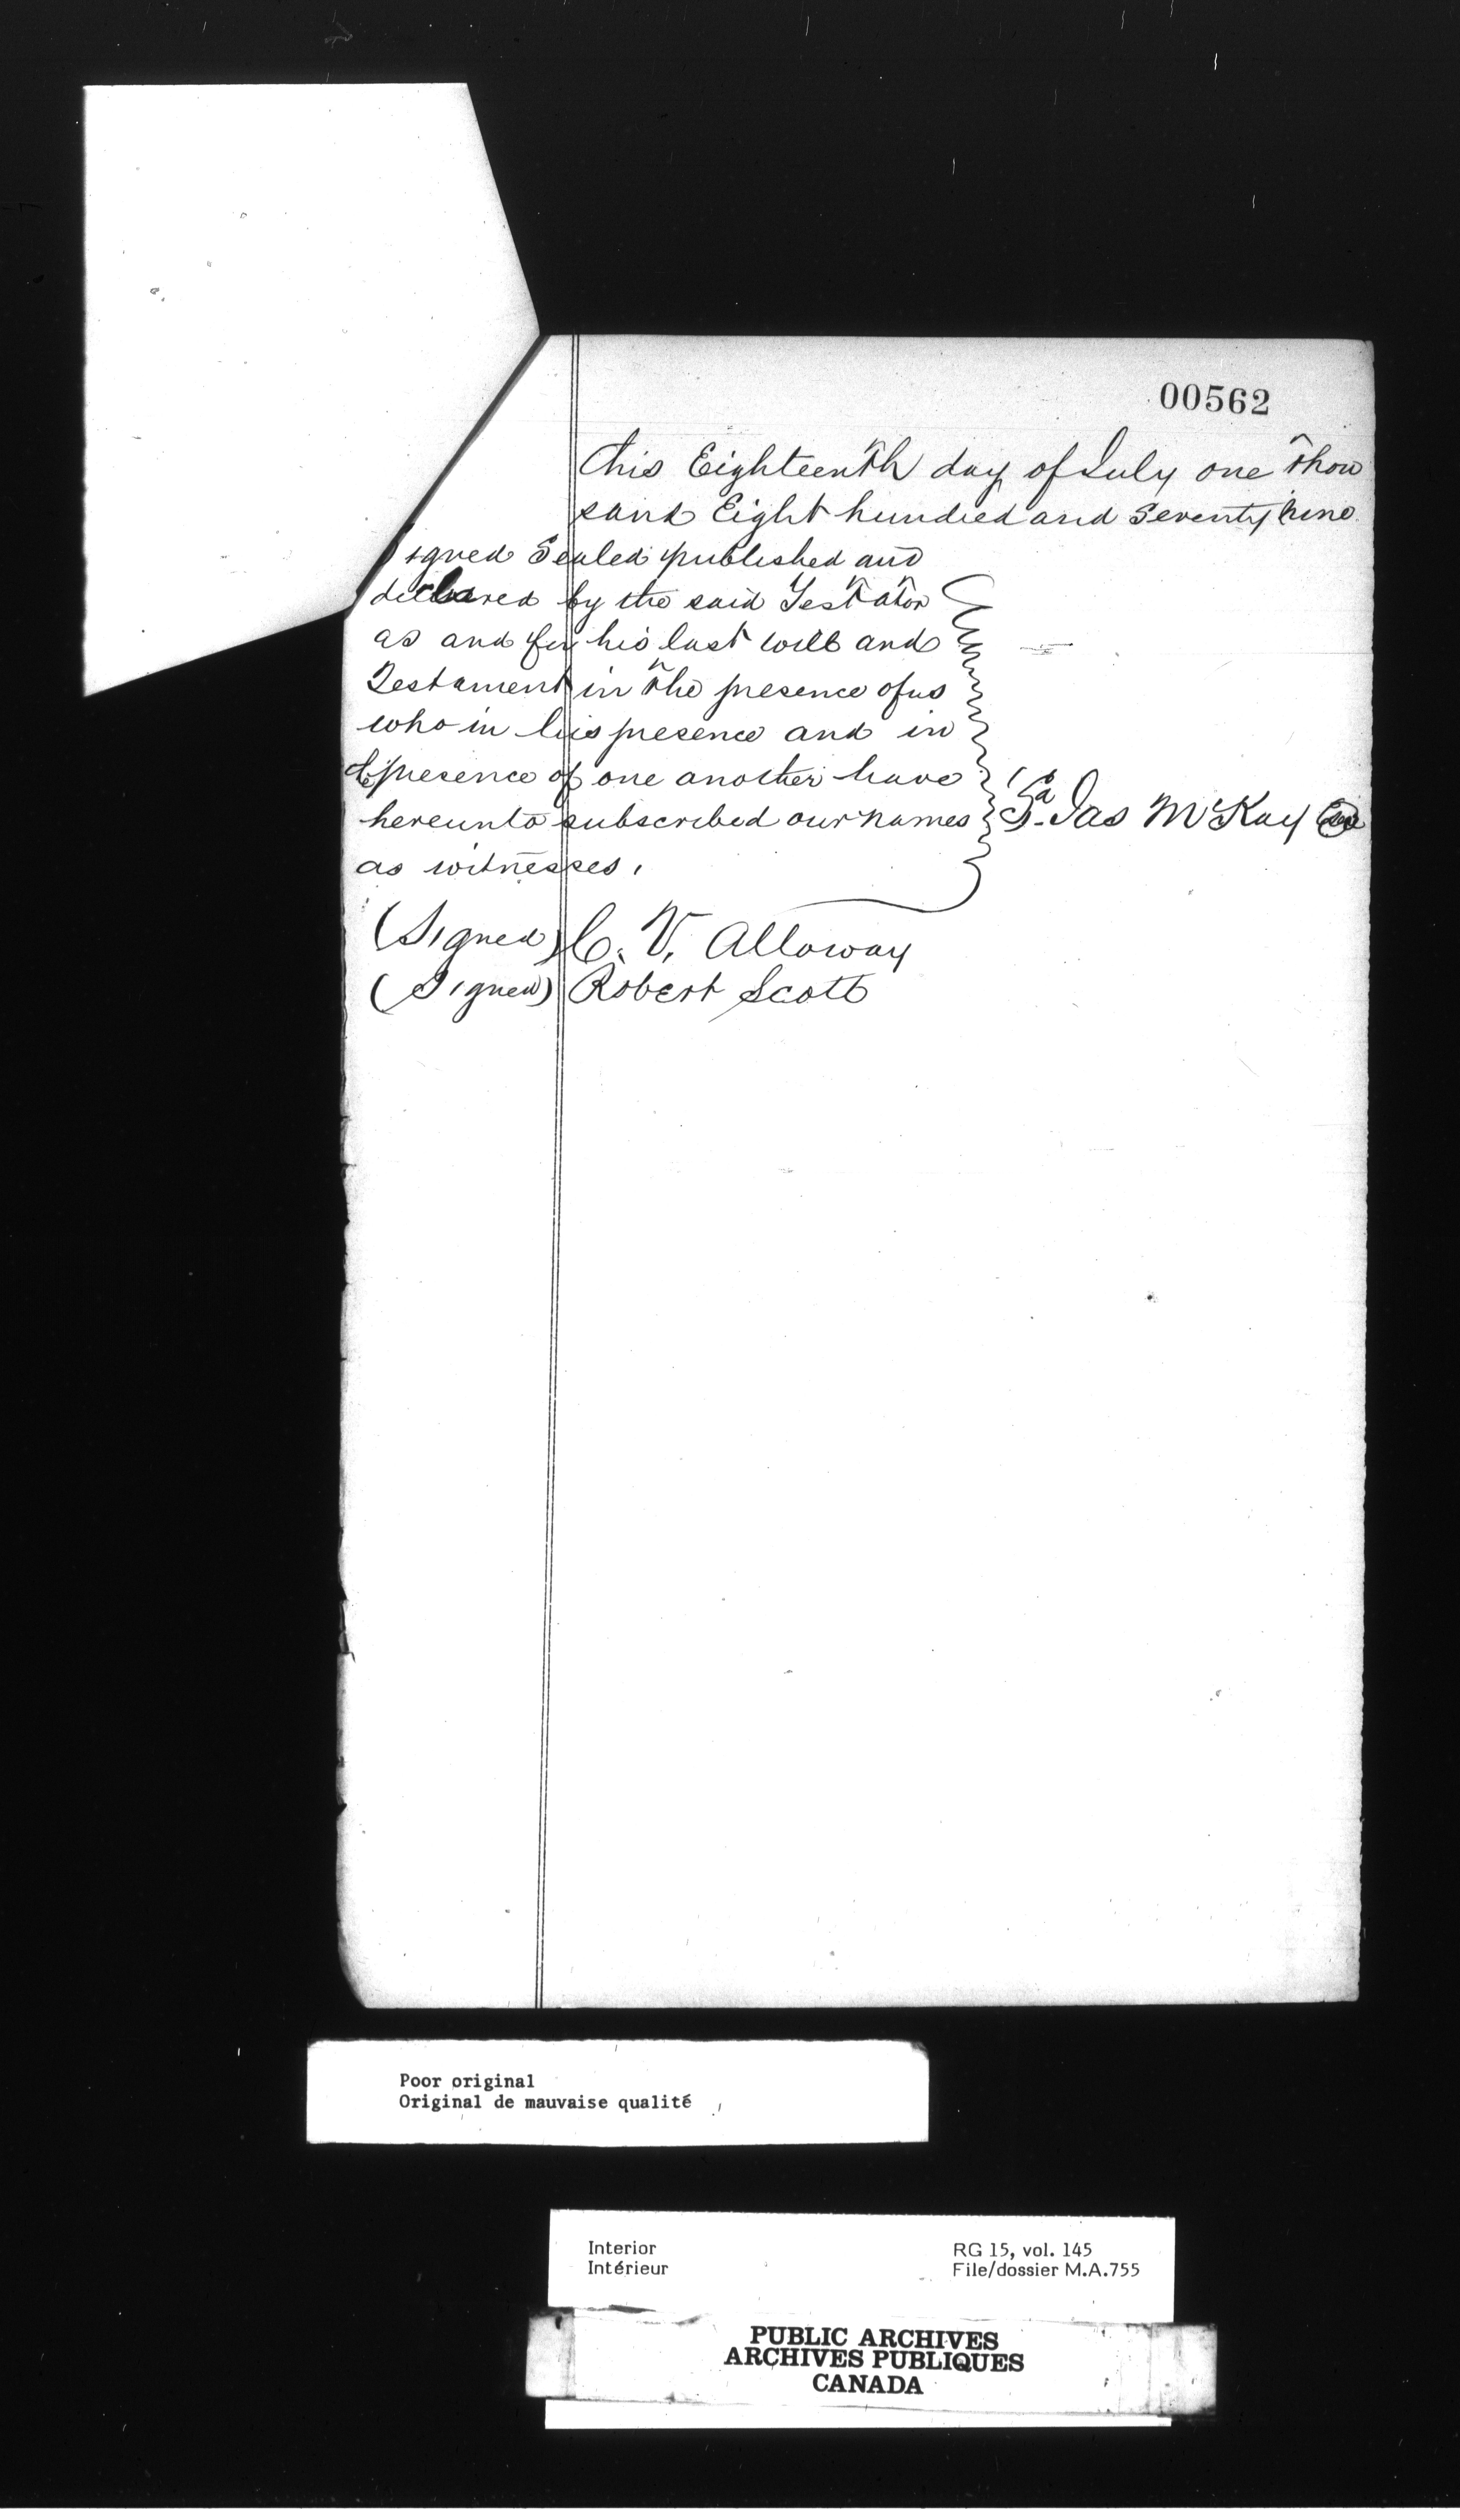 00562
this Eighteenth day of July one thou
sand Eight hundred and Seventy nine
Signed Sealed published and
declared by the said Testator
as and for his last will and
Testament in the presence of us
who in his presence and in
presence of one another have
hereunto subscribed our names Jas McKay
as witnesses.
(Signed) C. V. Alloway
(Signed) Robert Scott
Poor original
Original de mauvaise qualité
Interior RG 15, vol. 145
Intérieur File/dossier M.A.755
PUBLIC ARCHIVES
ARCHIVES PUBLIQUES
CANADA